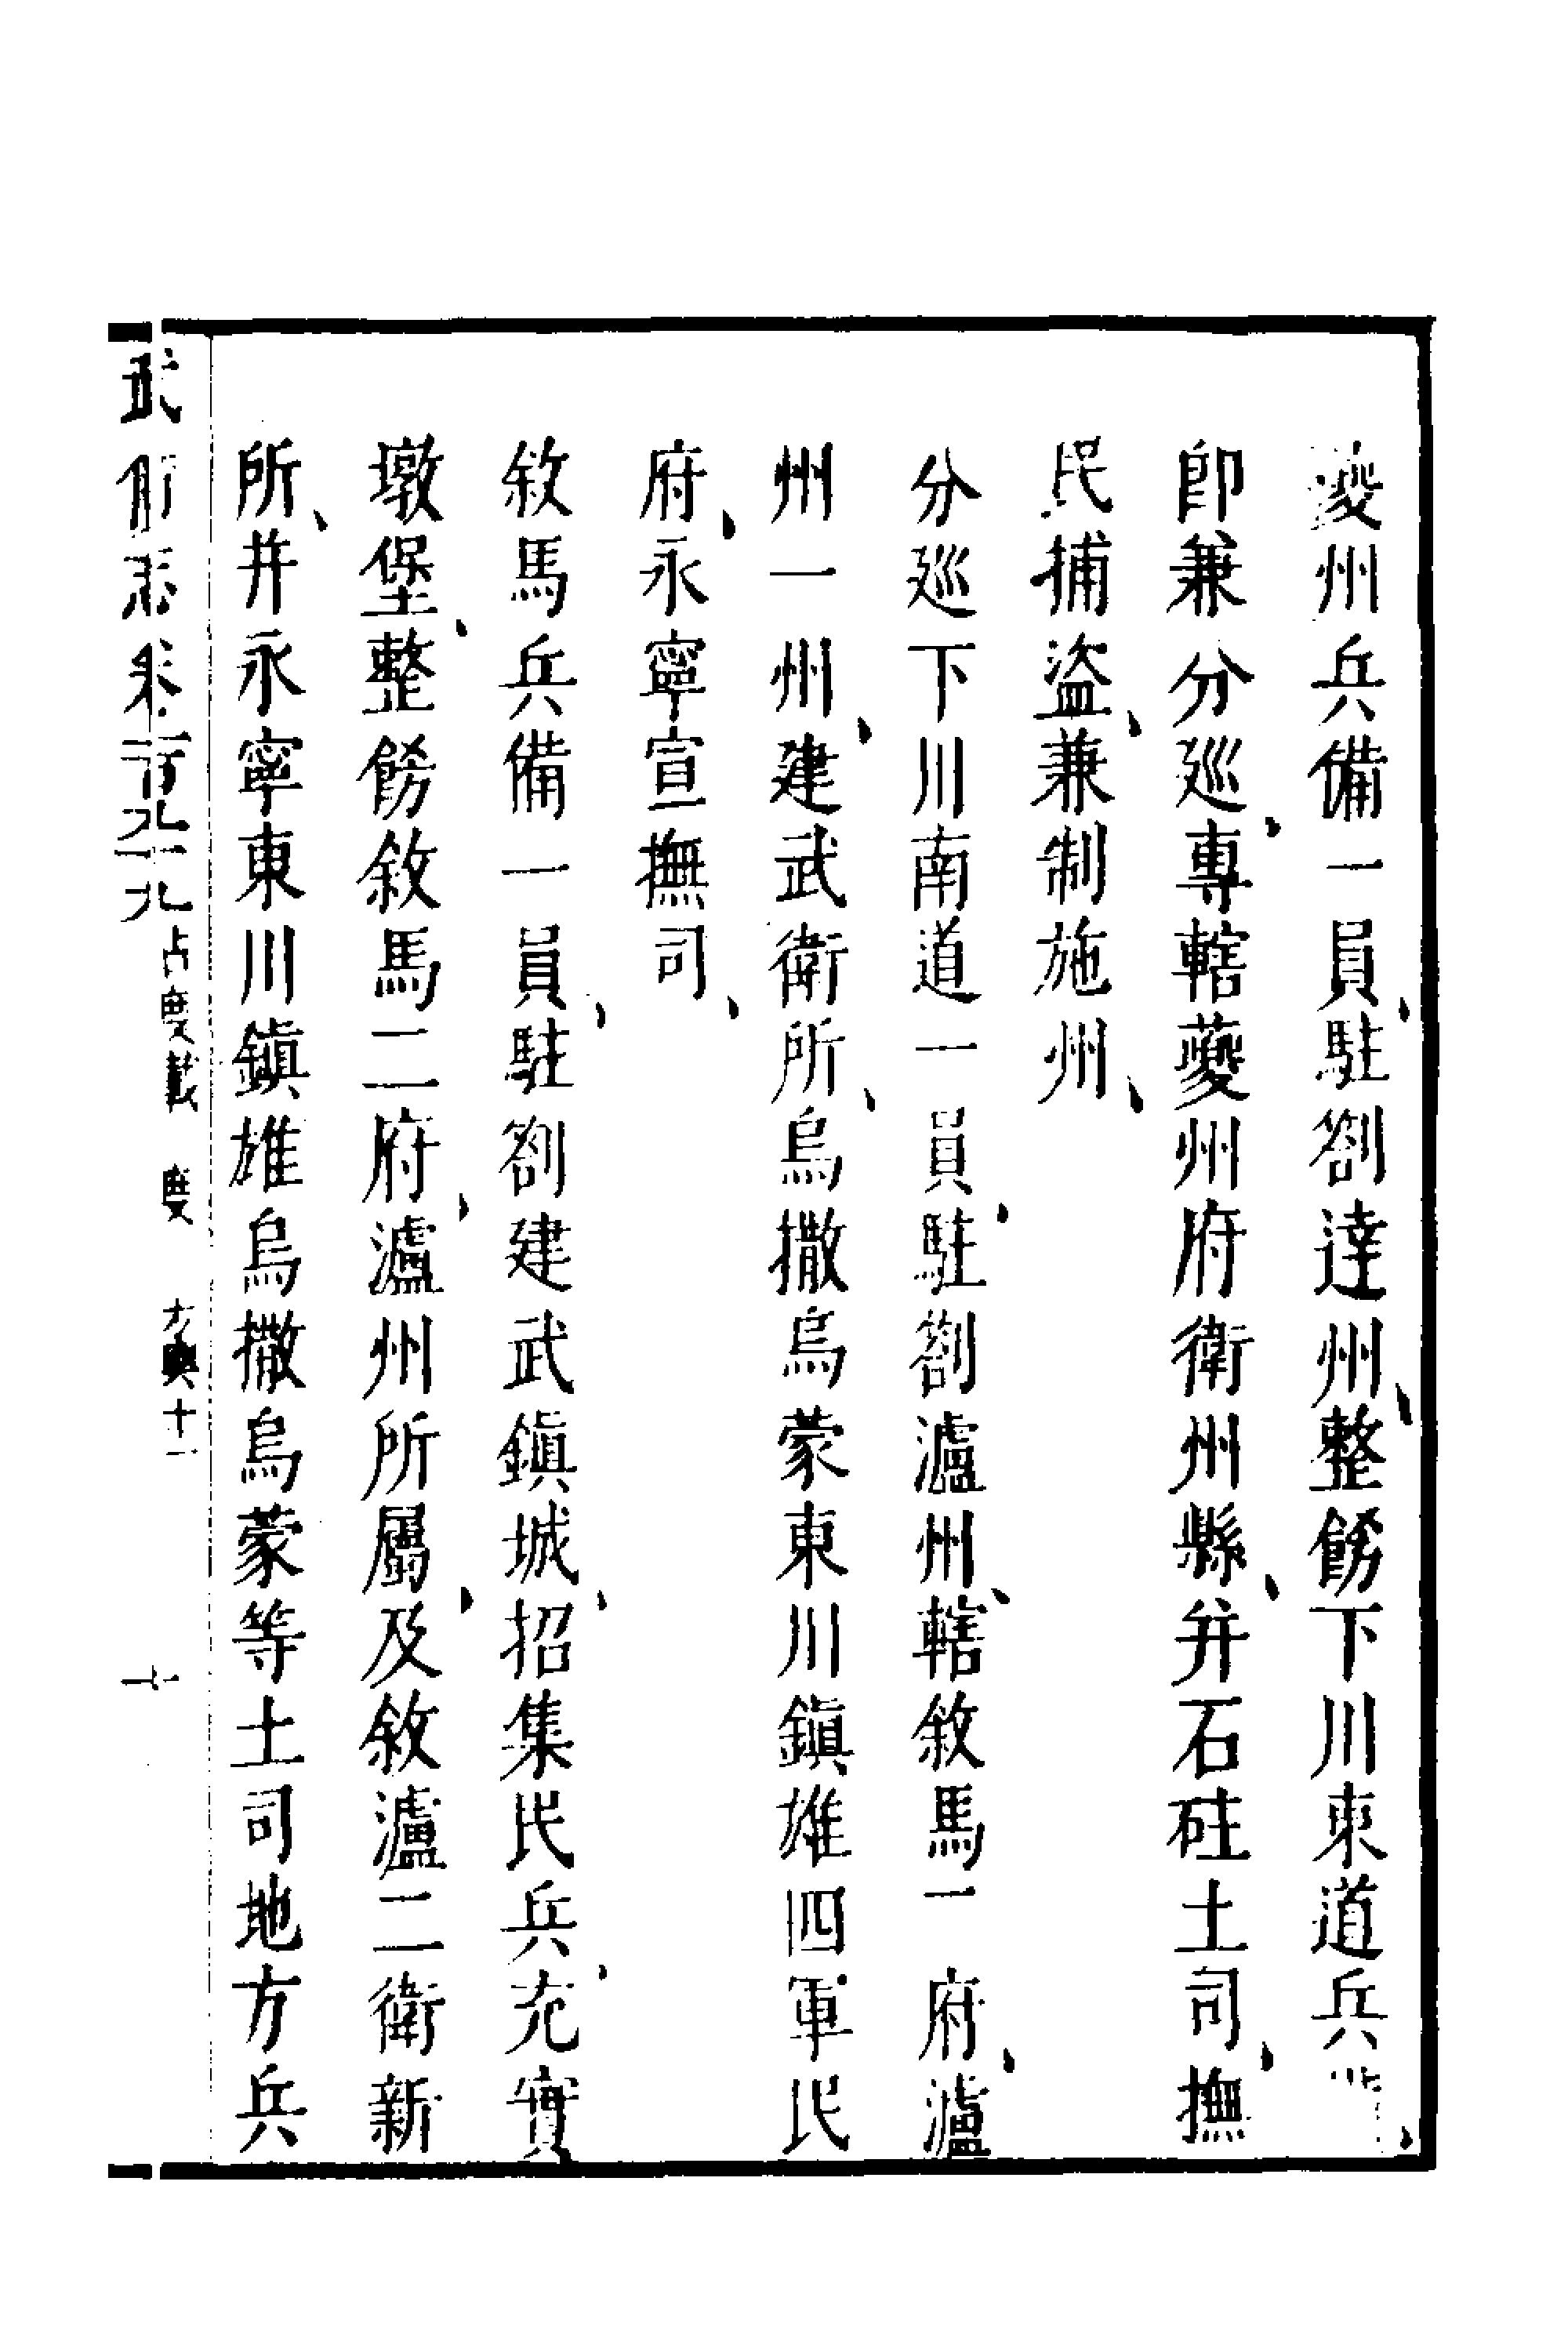 夔州兵備一員、駐劄達州、整飭下川東道兵備、
卽兼分廵、專轄夔州府衛州縣、并石砫土司、撫
民捕盜、兼制施州、
分廵下川南道一員、駐劄瀘州、轄敘馬一府、瀘
州一州、建武衛所、烏撒烏蒙東川鎮雄四軍民
府、永寧宣撫司、
敘馬兵備一員、駐劄建武鎮城、招集民兵、充實
墩堡、整飭敘馬二府、瀘州所屬、及敘瀘二衛新
所、并永寧東川鎮雄烏撒烏蒙等土司地方兵
武備志卷一百九十九 占度載 度 十一